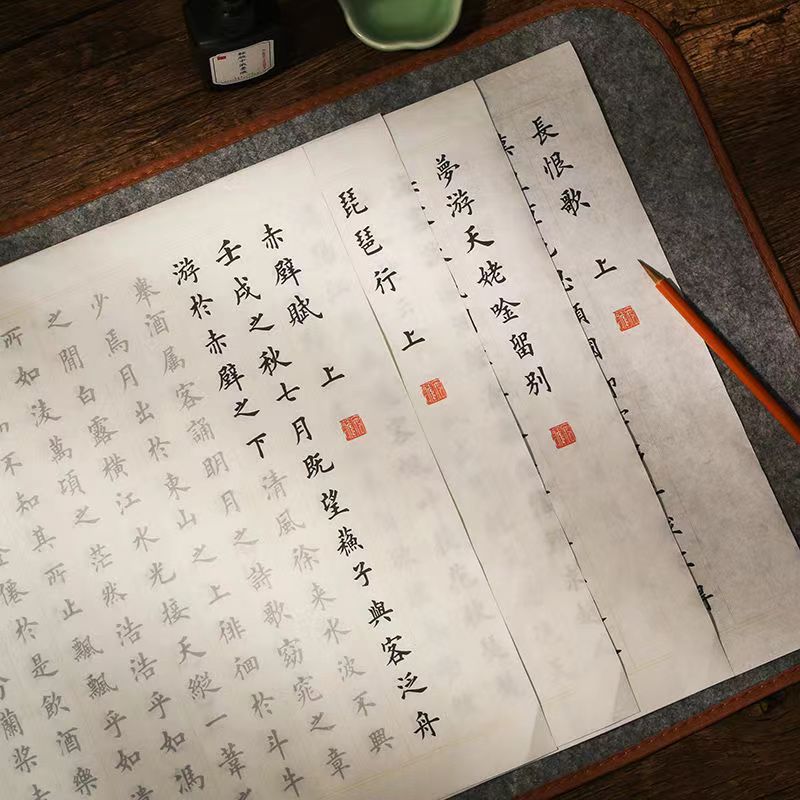 長恨歌 上
夢游天姥唫留别
琵琶行 上
赤壁賦 上
壬戌之秋七月既望蘇子與客泛舟
游於赤壁之下清風徐来水波不興
舉酒属客誦明月之詩歌窈窕之章
少焉月出於東山之上徘徊於斗牛
之間白露横江水光接天縱一葦
所如淩萬頃之茫然浩浩乎如馮
不知其所止飄飄乎如遺
僊於是飲酒樂
蘭桨